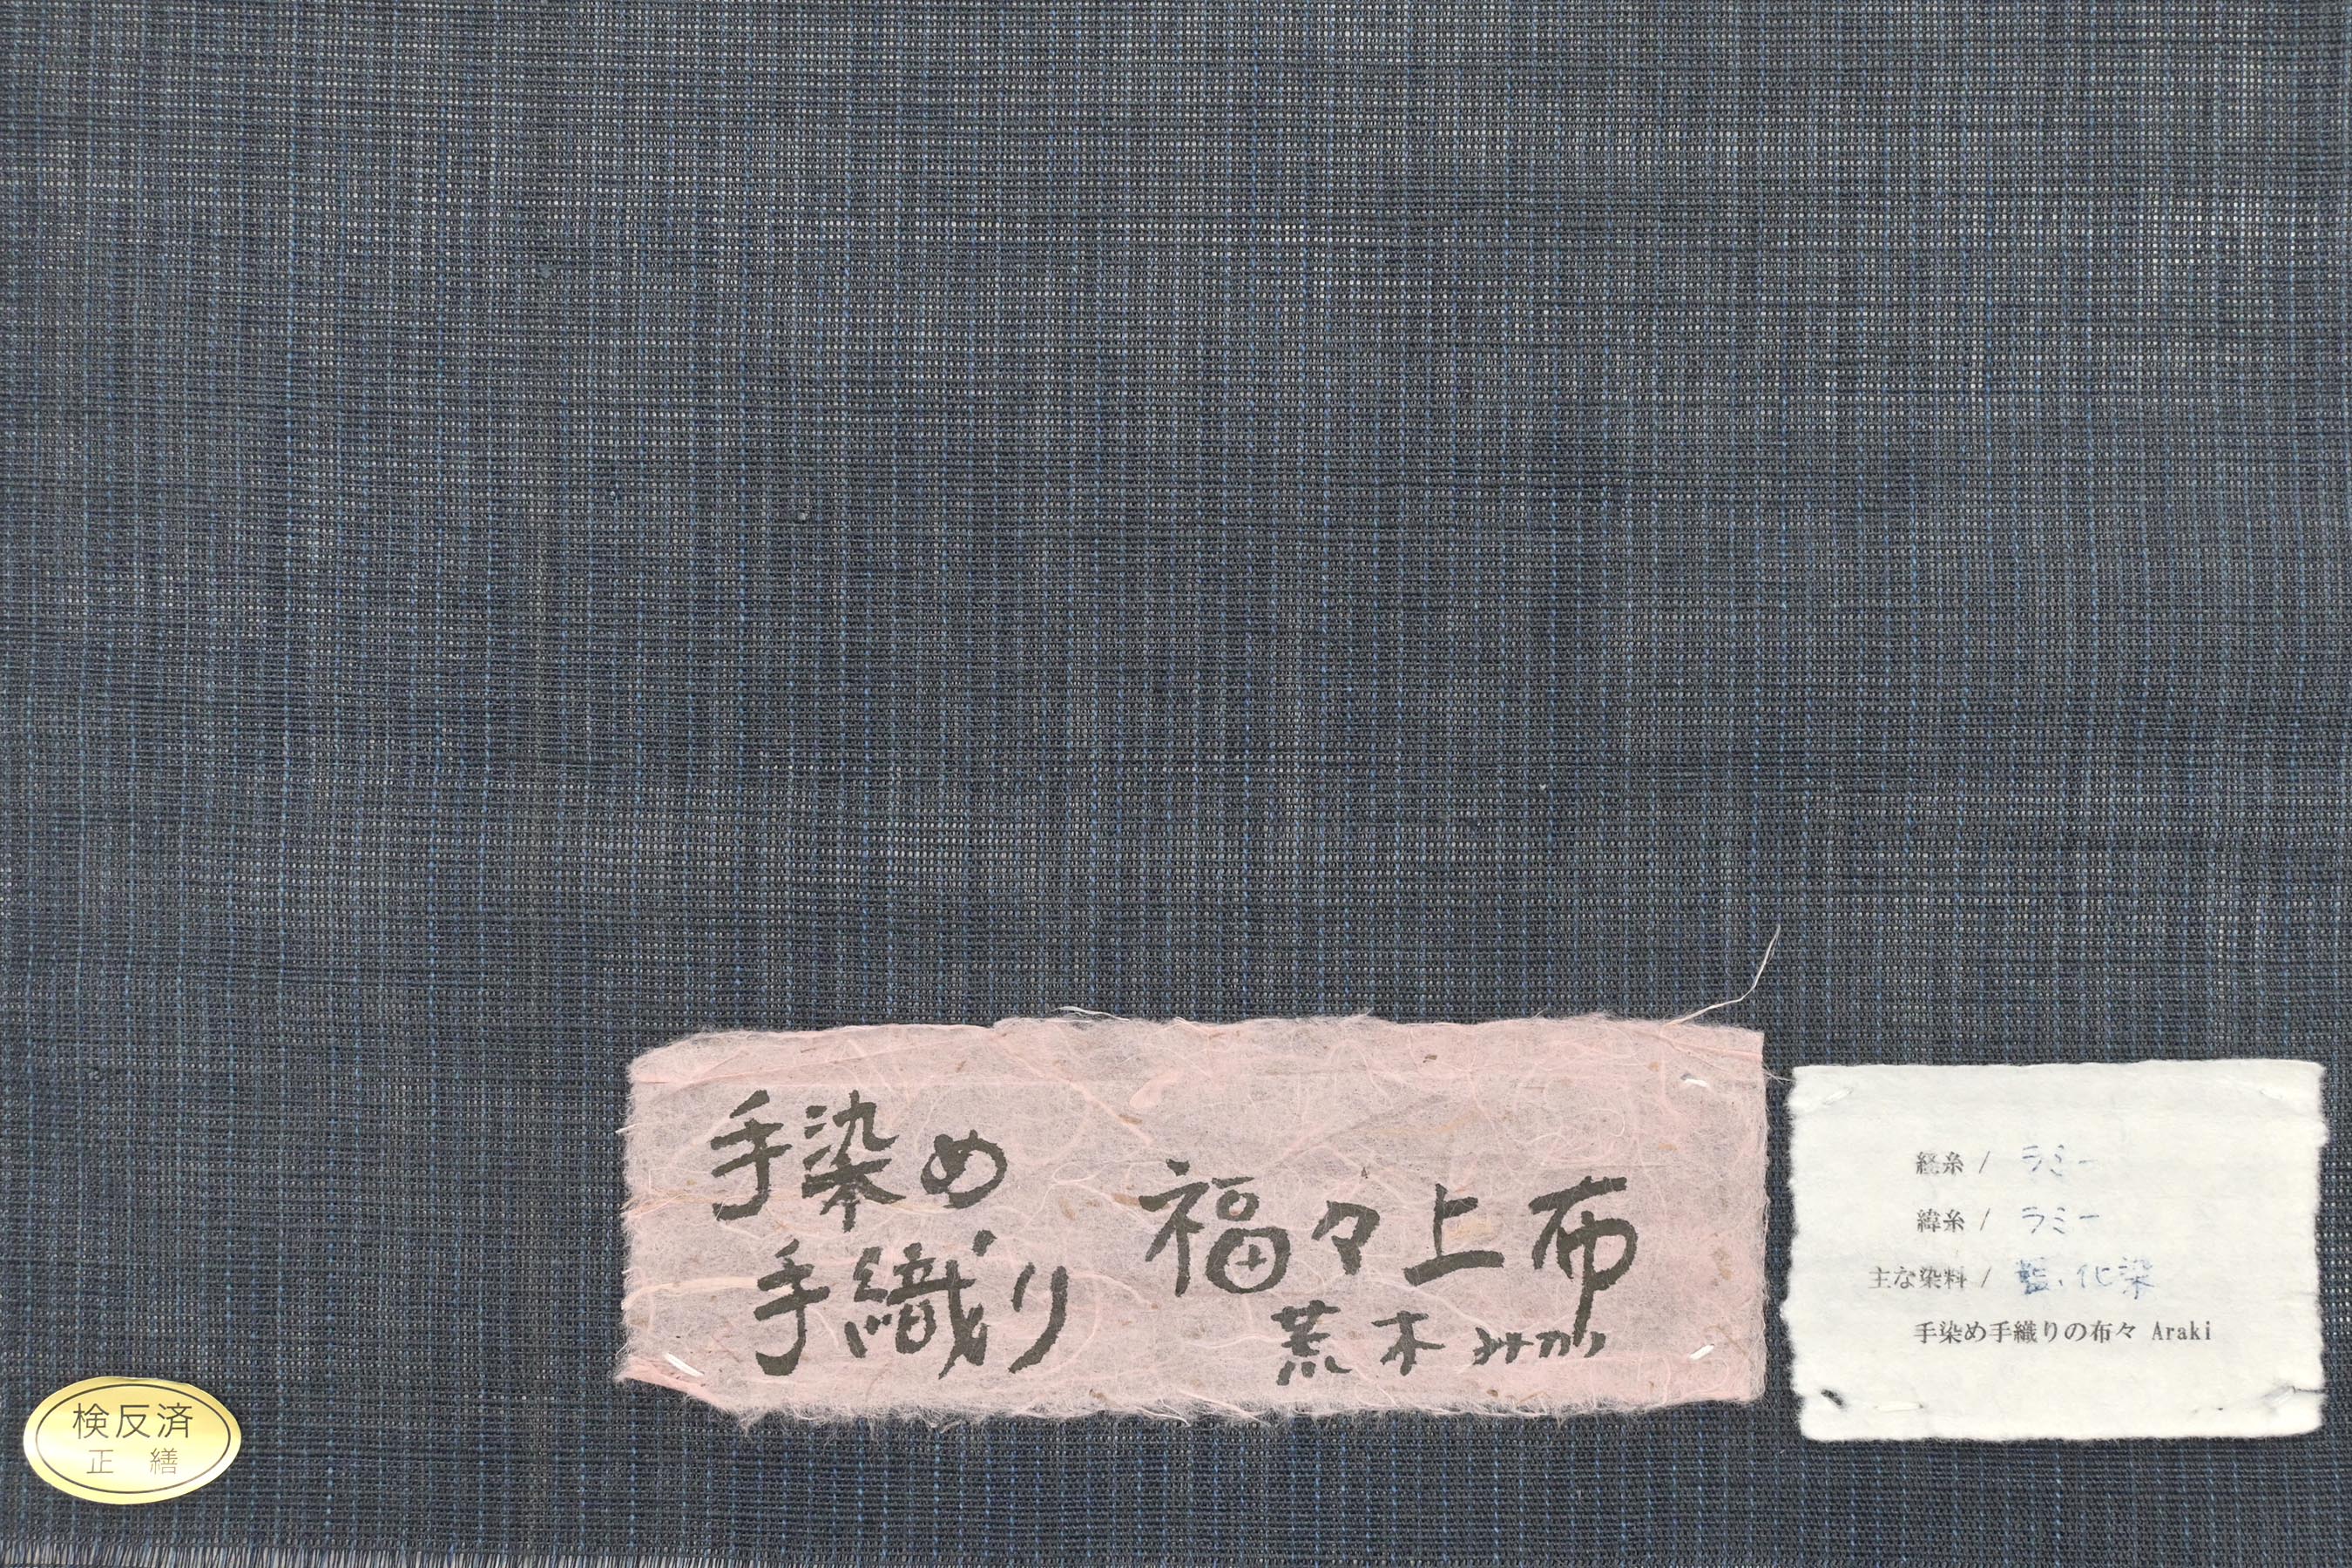 手染め
手織り
福々上布
荒木みか
経糸 / ラミー
緯糸 / ラミー
主な染料 / 藍、化染
手染め手織りの布々 Araki
検反済
正 繕